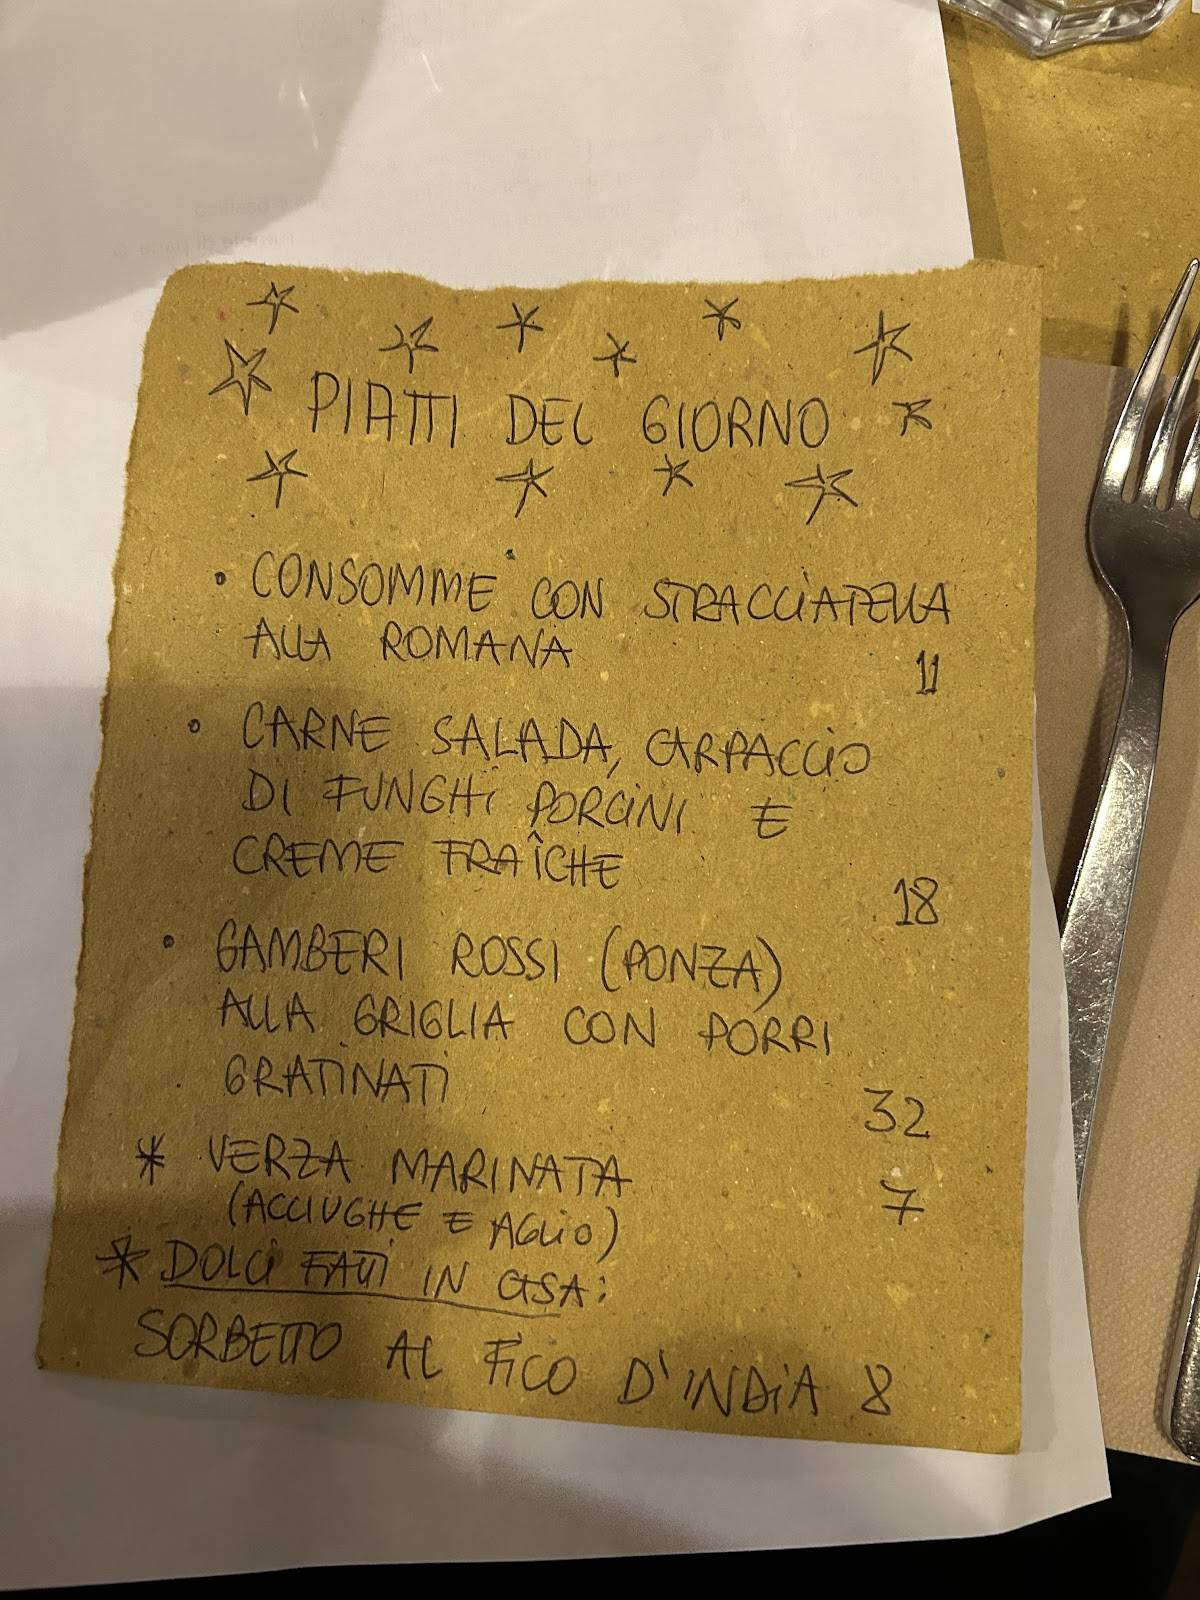 PIATTI DEL GIORNO
• CONSOMMÈ CON STRACCIATELLA
ALLA ROMANA 11
• CARNE SALADA, CARPACCIO
DI FUNGHI PORCINI E
CREME FRAÎCHE 18
• GAMBERI ROSSI (PONZA)
ALLA GRIGLIA CON PORRI
GRATINATI 32
* VERZA MARINATA 7
(ACCIUGHE E AGLIO)
* DOLCI FATTI IN CASA:
SORBETTO AL FICO D'INDIA 8